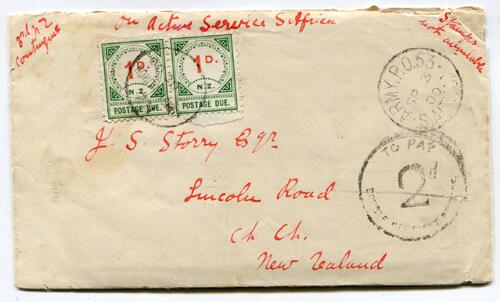 3rd N Z
Contingent
On Active Service S. Africa
Stamps
not available
1D.
N.Z.
POSTAGE DUE.
1D.
N.Z.
POSTAGE DUE.
ARMY P.O. 53
SP 3
00
TO PAY
2d
J. S. Storry Esqr.
Lincoln Road
Ch Ch.
New Zealand